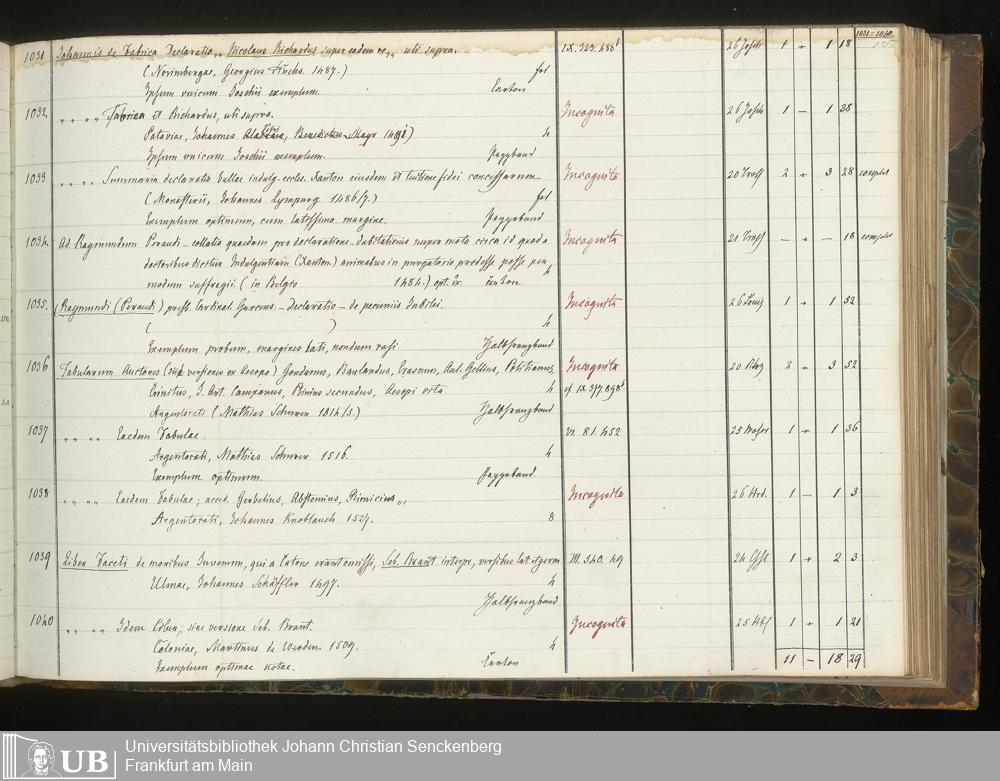 1031-1040.
1031 Johannis de Fabrica Declaratio „ Nicolaus Richardus super eadem re „ uti supra. IX. 323. 486 26 Josch 1 + 1 18
(Norimbergae, Georgius Fuchs. 1487.) fol
Ipsum unicum Joschii exemplum. Carton
1032. „ „ „ Fabrica et Richardus, uti supra. Incognita 26 Josch 1 – 1 38
Pataviae, Johannes Petri, Benedictus Mayr 1491) 4
Ipsum unicum Joschii exemplum. Pappband
1033 „ „ „ Summaria declaratio bullae indulg. eccles. Xanton eiusdem et tuitione fidei concessarum Incognita 20 Tross 2 + 3 28 complet
(Monasterii, Johannes Lympurg 1486/7.) fol
Exemplum optimum, cum latissimo margine. Pappband
1034. Ad. Raymundum Peraudi – collatio quaedam pro declaratione dubitationis super mota circa id quod a Incognita 21 Tross – + – 18 complet
doctoribus dicitur Indulgentiam (Xanton.) animabus in purgatorio prodesse posse per
modum suffragii. (in Belgio 1484.) opt. 4 Carton
1035. (Raymundi (Peraudi.) presb. Cardinal. Gurcens. – Declaratio – de pecuniis Jubilei. Incognita 26 1 + 1 52
( ) 4
Exemplum probum, margines lati, nondum rasi. Halbfranzband
1036 Fabularum Auctores ( versiones ex Aesopo) Goudanus, Barlandus, Erasmus, Aul. Gellius, Politianus, Incognita 20 2 + 3 52
Crinitus, J. Ant. Campanus, Plinius secundus, Aesopi vita 4 cf IX. 377. 898
Argentorati (Mathias Schurer 1514/5.) Halbfranzband
1037 „ „ „ Eaedem Fabulae. VI. 81. 452 25 1 + 1 36
Argentorati, Mathias Schurer 1516. 4
Exemplum optimum. Pappband
1038 „ „ „ Eaedem Fabulae; acced. Gerbelius, Abstemius, Rimicius „ Incognita 26 1 – 1 3
Argentorati, Johannes Knoblauch 1527. 8
1039 Liber Faceti de moribus Juvenum, qui a Catone erant omissi, Seb. Brant interpr, versibus lat. et germ III. 340. 49 24 1 + 2 3
Ulmae, Johannes Schäffler 1497. 4
Halbfranzband
1040 „ „ „ Idem Liber, sine versione Seb. Brant. Incognita 25 1 + 1 21
Coloniae, Martinus de Werden. 1509. 4
Exemplum optimae notae. Carton
11 – 18 29
UB
Universitätsbibliothek Johann Christian Senckenberg
Frankfurt am Main